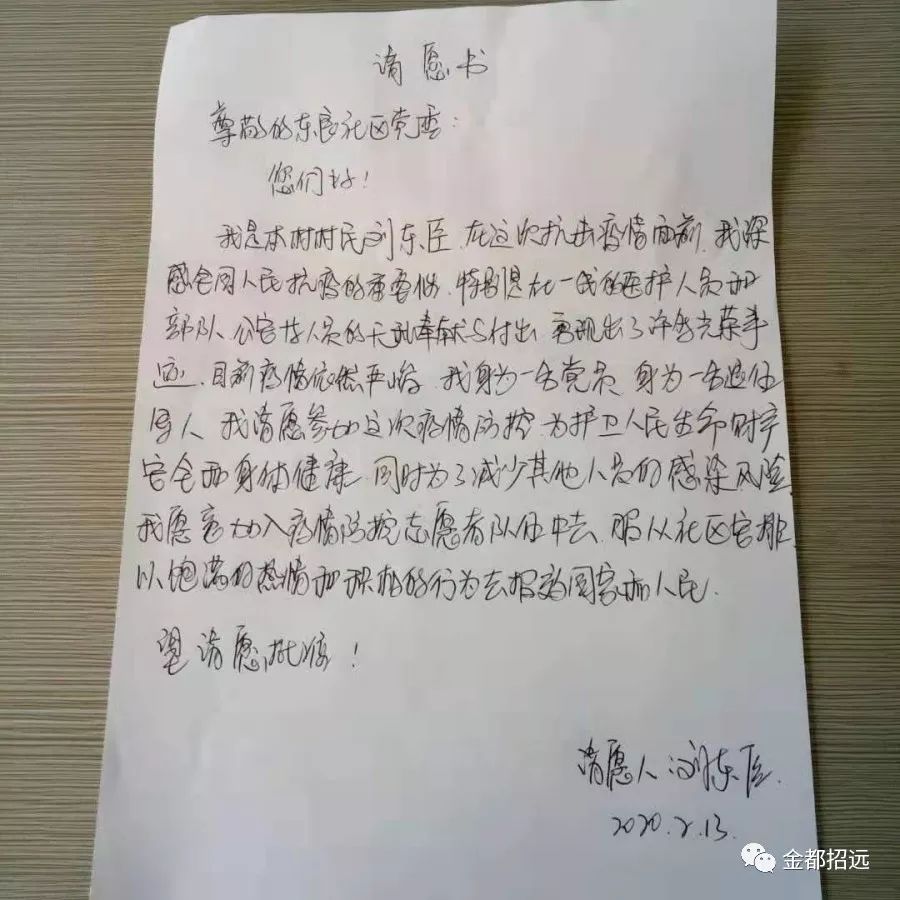 请愿书
尊敬的东官社区党委：
您们好！
我是本村村民刘东臣，在这次抗击疫情面前，我深
感全国人民抗疫的重要性，特别是在一线的医护人员和
部队、公安等人员的无私奉献与付出，实现出了许多光荣事
迹，目前疫情依然严峻，我身为一名党员，身为一名退伍
军人，我请愿参加这次疫情防控，为护卫人民生命财产
安全和身体健康，同时为了减少其他人员的感染风险，
我愿意加入疫情防控志愿者队伍中去，服从社区安排，
以饱满的热情和积极的行为去报效国家和人民。
望请愿批准！
请愿人：刘东臣.
2020.2.13.
金都招远